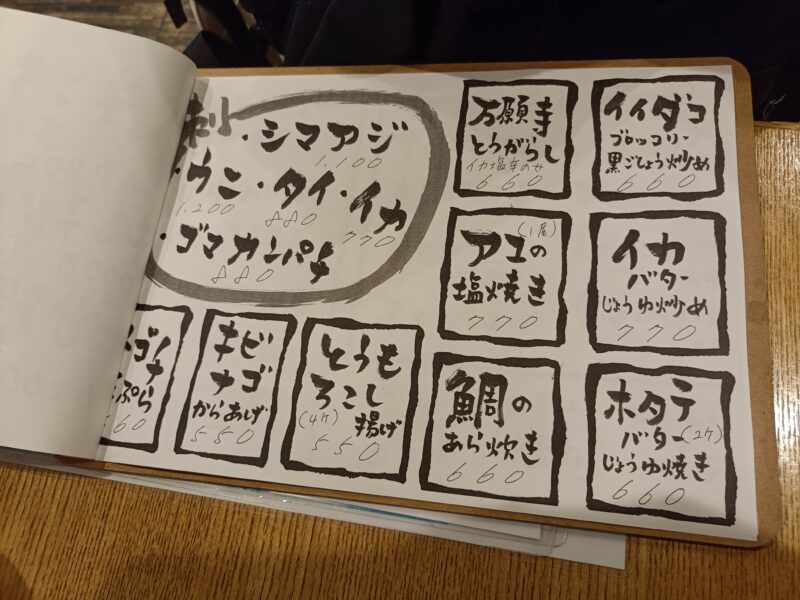 刺・シマアジ
1,100
・ウニ・タイ・イカ
1,200 880 770
・ゴマカンパチ
880
万願寺
とうがらし
イカ塩辛のせ
660
イイダコ
ブロッコリー
黒ごしょう炒め
660
アユの(1尾)
塩焼き
770
イカ
バター
じょうゆ炒め
770
ゴ
ぷら
60
キビ
ナゴ
からあげ
550
とうも
ろこし
(4ケ)揚げ
550
鯛の
あら炊き
660
ホタテ
バター(2ケ)
じょうゆ焼き
660